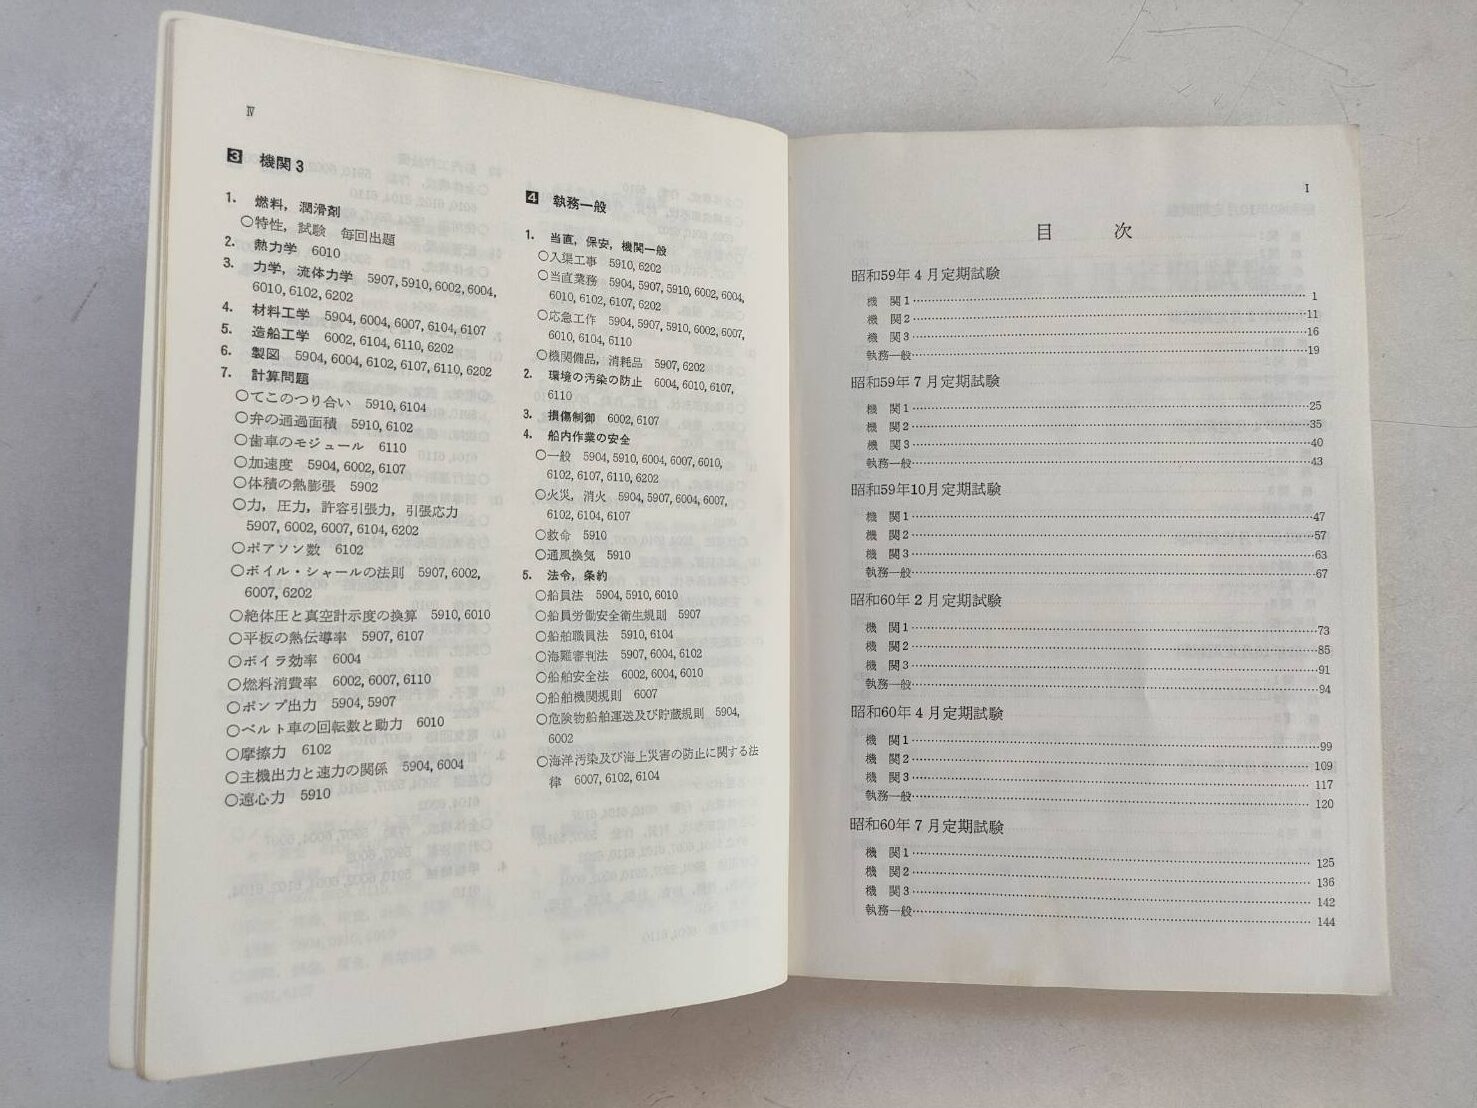 Ⅳ
3 機関3
1. 燃料，潤滑剤
○特性，試験 毎回出題
2. 熱力学 6010
3. 力学，流体力学 5907, 5910, 6002, 6004,
6010, 6102, 6202
4. 材料工学 5904, 6004, 6007, 6104, 6107
5. 造船工学 6002, 6104, 6110, 6202
6. 製図 5904, 6004, 6102, 6107, 6110, 6202
7. 計算問題
○てこのつり合い 5910, 6104
○弁の通過面積 5910, 6102
○歯車のモジュール 6110
○加速度 5904, 6002, 6107
○体積の熱膨張 5902
○力，圧力，許容引張力，引張応力
5907, 6002, 6007, 6104, 6202
○ポアソン数 6102
○ボイル・シャールの法則 5907, 6002,
6007, 6202
○絶体圧と真空計示度の換算 5910, 6010
○平板の熱伝導率 5907, 6107
○ボイラ効率 6004
○燃料消費率 6002, 6007, 6110
○ポンプ出力 5904, 5907
○ベルト車の回転数と動力 6010
○摩擦力 6102
○主機出力と速力の関係 5904, 6004
○遠心力 5910
4 執務一般
1. 当直，保安，機関一般
○入渠工事 5910, 6202
○当直業務 5904, 5907, 5910, 6002, 6004,
6010, 6102, 6107, 6202
○応急工作 5904, 5907, 5910, 6002, 6007,
6010, 6104, 6110
○機関備品，消耗品 5907, 6202
2. 環境の汚染の防止 6004, 6010, 6107,
6110
3. 損傷制御 6002, 6107
4. 船内作業の安全
○一般 5904, 5910, 6004, 6007, 6010,
6102, 6107, 6110, 6202
○火災，消火 5904, 5907, 6004, 6007,
6102, 6104, 6107
○救命 5910
○通風換気 5910
5. 法令，条約
○船員法 5904, 5910, 6010
○船員労働安全衛生規則 5907
○船舶職員法 5910, 6104
○海難審判法 5907, 6004, 6102
○船舶安全法 6002, 6004, 6010
○船舶機関規則 6007
○危険物船舶運送及び貯蔵規則 5904,
6002
○海洋汚染及び海上災害の防止に関する法
律 6007, 6102, 6104
I
目 次
昭和59年4月定期試験
機 関1……1
機 関2……11
機 関3……16
執務一般……19
昭和59年7月定期試験
機 関1……25
機 関2……35
機 関3……40
執務一般……43
昭和59年10月定期試験
機 関1……47
機 関2……57
機 関3……63
執務一般……67
昭和60年2月定期試験
機 関1……73
機 関2……85
機 関3……91
執務一般……94
昭和60年4月定期試験
機 関1……99
機 関2……109
機 関3……117
執務一般……120
昭和60年7月定期試験
機 関1……125
機 関2……136
機 関3……142
執務一般……144